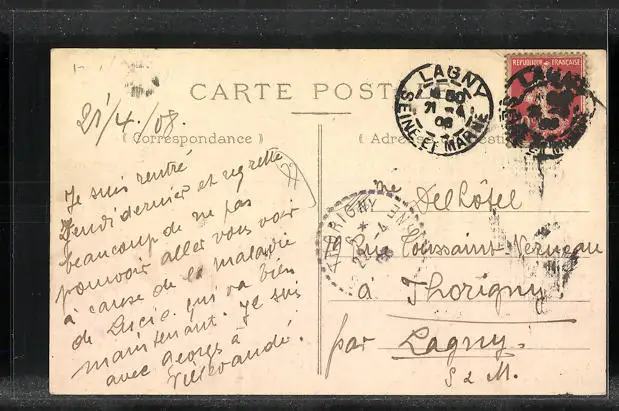 CARTE POSTALE
( Correspondance )
( Adresse
21/4./08.
Je suis rentré
Jeudi dernier et regrette
beaucoup de ne pas
pouvoir aller vous voir
à cause de la maladie
de Lucie qui va bien
maintenant. Je suis
avec Georges à
Villevaudé.
LAGNY
21 -4
08
SEINE ET MARNE
REPUBLIQUE FRANÇAISE
LAGNY
THORIGNY
Me Delhôtel
rue Toussaint Verneau
à Thorigny
par Lagny.
S & M.